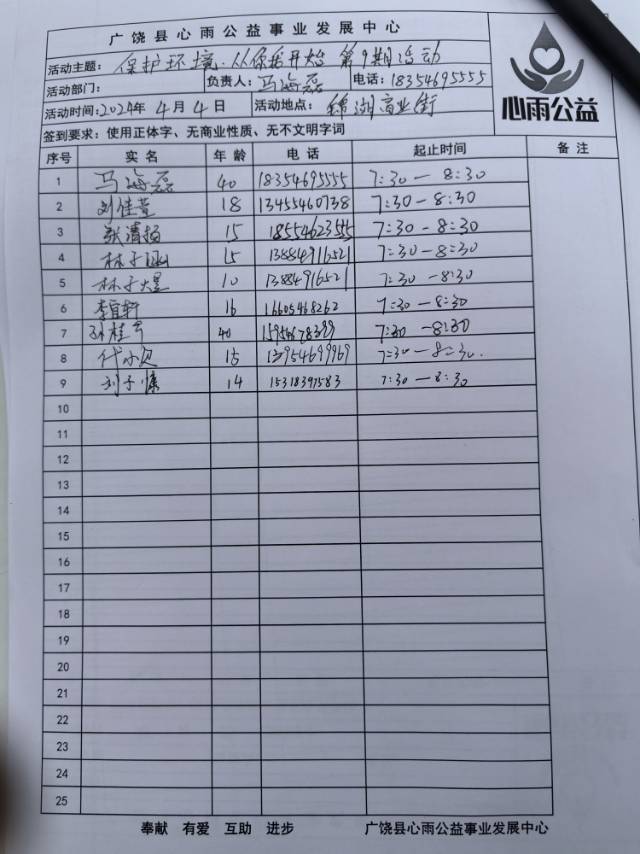 广饶县心雨公益事业发展中心
活动主题: 保护环境、从你我开始 第9期活动
活动部门: 负责人: 马海磊 电话: 18354695555
活动时间: 2024年 4月 4日 活动地点: 锦湖商业街
心雨公益
签到要求: 使用正体字、无商业性质、无不文明字词
序号 实名 年龄 电话 起止时间 备注
1 马海磊 40 18354695555 7:30-8:30
2 刘佳萱 18 13455460738 7:30-8:30
3 张清扬 15 18554623555 7:30-8:30
4 林子涵 15 13884916521 7:30-8:30
5 林子煜 10 13884916521 7:30-8:30
6 李宜轩 16 16605468262 7:30-8:30
7 孙桂 40 7:30-8:30
8 代 15 13954699969 7:30-8:30.
9 刘子慷 14 15318397583 7:30-8:30
10
11
12
13
14
15
16
17
18
19
20
21
22
23
24
25
奉献 有爱 互助 进步 广饶县心雨公益事业发展中心